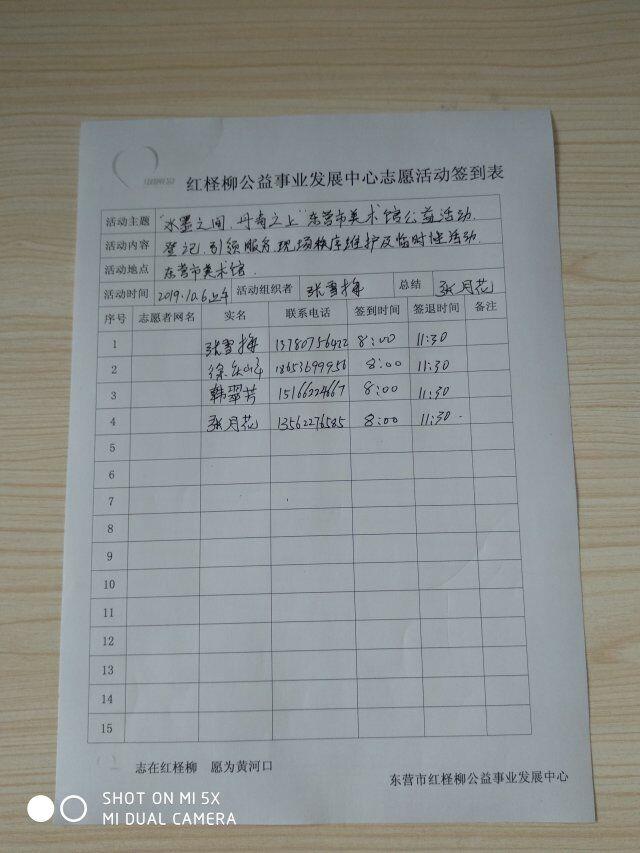 红柽柳公益事业发展中心志愿活动签到表
活动主题 "水墨之间,丹青之上"东营市美术馆公益活动.
活动内容 登记.引领服务.现场秩序维护及临时性活动.
活动地点 东营市美术馆.
活动时间 2019.10.6上午 活动组织者 张雪梅 总结 张月花
序号 志愿者网名 实名 联系电话 签到时间 签退时间 备注
1 张雪梅 13780756422 8:00 11:30
2 徐 18653699956 8:00 11:30
3 韩翠芳 15166224667 8:00 11:30
4 张月花 13562276585 8:00 11:30.
5
6
7
8
9
10
11
12
13
14
15
志在红柽柳 愿为黄河口
东营市红柽柳公益事业发展中心
SHOT ON MI 5X
MI DUAL CAMERA